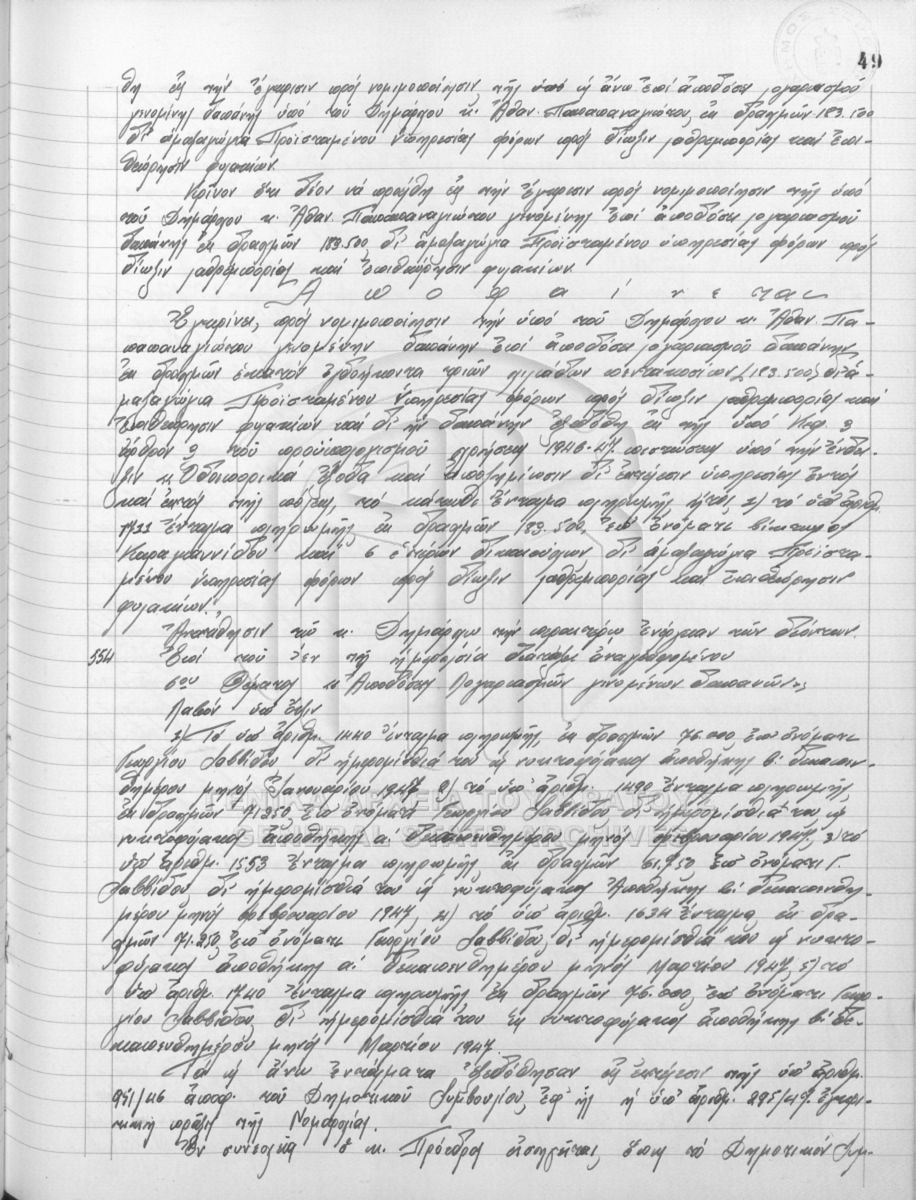 49
θῇ εἰς τὴν ἔγκρισιν πρὸς νομιμοποίησιν τῆς ὑπὸ ὡς ἄνω ἐπὶ ἀποδόσει λογαριασμοῦ
γενομένης δαπάνης ὑπὸ τοῦ Δημάρχου κ. Ἀθαν. Παπαπαναγιώτου, ἐκ δραχμῶν 183.500
δι' ἁμαξαγώγια Προϊσταμένου ὑπηρεσίας φόρων πρὸς δίωξιν λαθρεμπορίας καὶ ἐπι-
θεώρησιν φυλακίων.
Κρῖνον ὅτι δέον νὰ προέλθῃ εἰς τὴν ἔγκρισιν πρὸς νομιμοποίησιν τῆς ὑπὸ
τοῦ Δημάρχου κ. Ἀθαν. Παπαπαναγιώτου γενομένης ἐπὶ ἀποδόσει λογαριασμοῦ
δαπάνης ἐκ δραχμῶν 183.500 δι' ἁμαξαγώγια Προϊσταμένου ὑπηρεσίας φόρων πρὸς
δίωξιν λαθρεμπορίας καὶ ἐπιθεώρησιν φυλακίων.
Ἀποφαίνεται
Ἐγκρίνει, πρὸς νομιμοποίησιν τὴν ὑπὸ τοῦ Δημάρχου κ. Ἀθαν. Πα-
παπαναγιώτου γενομένην δαπάνην ἐπὶ ἀποδόσει λογαριασμοῦ δαπάνην
ἐκ δραχμῶν ἑκατὸν ὀγδοήκοντα τριῶν χιλιάδων πεντακοσίων (183.500) δι' ἁ-
μαξαγώγια Προϊσταμένου ὑπηρεσίας φόρων πρὸς δίωξιν λαθρεμπορίας καὶ
ἐπιθεώρησιν φυλακίων καὶ δι' ἣν δαπάνην ἐξεδόθη ἐκ τῆς ὑπὸ Κεφ. 9
ἄρθρον 9 τοῦ προϋπολογισμοῦ χρήσεως 1946-47 πιστώσεως ὑπὸ τὴν ἔνδει-
ξιν «Ὁδοιπορικὰ ἔξοδα καὶ ἀποζημίωσιν δι' ἐκτέλεσιν ὑπηρεσίας ἐντὸς
καὶ ἐκτὸς τῆς πόλεως, τὸ κάτωθι ἔνταλμα πληρωμῆς, ἤτοι, 1) τὸ ὑπ' ἀριθ.
1733 ἔνταλμα πληρωμῆς ἐκ δραχμῶν 183.500, ἐπ' ὀνόματι Βίκτωρος
Καραγιαννίδου καὶ 6 ἑτέρων δικαιούχων δι' ἁμαξαγώγια Προϊστα-
μένου ὑπηρεσίας φόρων πρὸς δίωξιν λαθρεμπορίας καὶ ἐπιθεώρησιν
φυλακίων.
Ἀνατίθησιν τῷ κ. Δημάρχῳ τὴν περαιτέρω ἐνέργειαν τῶν δεόντων.
554 Ἐπὶ τοῦ ἐν τῇ ἡμερησίᾳ διατάξει ἀναγραφομένου
6ου Θέματος «Ἀποδόσεις Λογαριασμῶν γενομένων δαπανῶν»
Λαβὸν ὑπ' ὄψιν
1) Τὸ ὑπ' ἀριθμ. 1440 ἔνταλμα πληρωμῆς, ἐκ δραχμῶν 76.000, ἐπ' ὀνόματι
Γεωργίου Σαββίδου δι' ἡμερομίσθιά του ὡς νυκτοφύλακος ἀποθήκης β! δεκαπεν-
θημέρου μηνὸς Ἰανουαρίου 1947, 2) τὸ ὑπ' ἀριθμ. 1490 ἔνταλμα πληρωμῆς
ἐκ δραχμῶν 71.250, ἐπ' ὀνόματι Γεωργίου Σαββίδου, δι' ἡμερομίσθιά του ὡς
νυκτοφύλακος ἀποθήκης α. δεκαπενθημέρου μηνὸς Φεβρουαρίου 1947, 3) τὸ
ὑπ' ἀριθμ. 1553 ἔνταλμα πληρωμῆς, ἐκ δραχμῶν ἐπ' ὀνόματι Γ.
Σαββίδου, δι' ἡμερομίσθιά του ὡς νυκτοφύλακος ἀποθήκης β! δεκαπενθη-
μέρου μηνὸς Φεβρουαρίου 1947, 4) τὸ ὑπ' ἀριθμ. 1634 ἔνταλμα, ἐκ δρα-
χμῶν 71.250, ἐπ' ὀνόματι Γεωργίου Σαββίδου, δι' ἡμερομίσθιά του ὡς νυκτο-
φύλακος ἀποθήκης α! δεκαπενθημέρου μηνὸς Μαρτίου 1947, 5) τὸ
ὑπ' ἀριθμ. 1740 ἔνταλμα πληρωμῆς ἐκ δραχμῶν 76.000, ἐπ' ὀνόματι Γεωρ-
γίου Σαββίδου, δι' ἡμερομίσθιά του ὡς νυκτοφύλακος ἀποθήκης β! δε-
καπενθημέρου μηνὸς Μαρτίου 1947.
Τὰ ὡς ἄνω ἐντάλματα ἐξεδόθησαν εἰς ἐκτέλεσιν τῆς ὑπ' ἀριθμ.
951/46 ἀποφ. τοῦ Δημοτικοῦ Συμβουλίου, ἐφ' ἧς ἡ ὑπ' ἀριθμ. 295/47 ἐγκρι-
τικὴ πρᾶξις τῆς Νομαρχίας.
Ἐν συνεχείᾳ ὁ κ. Πρόεδρος εἰσηγεῖται, ὅπως τὸ Δημοτικὸν Συμ-
ΓΕΝΙΚΑ ΑΡΧΕΙΑ ΤΟΥ ΚΡΑΤΟΥΣ
GENERAL STATE ARCHIVES